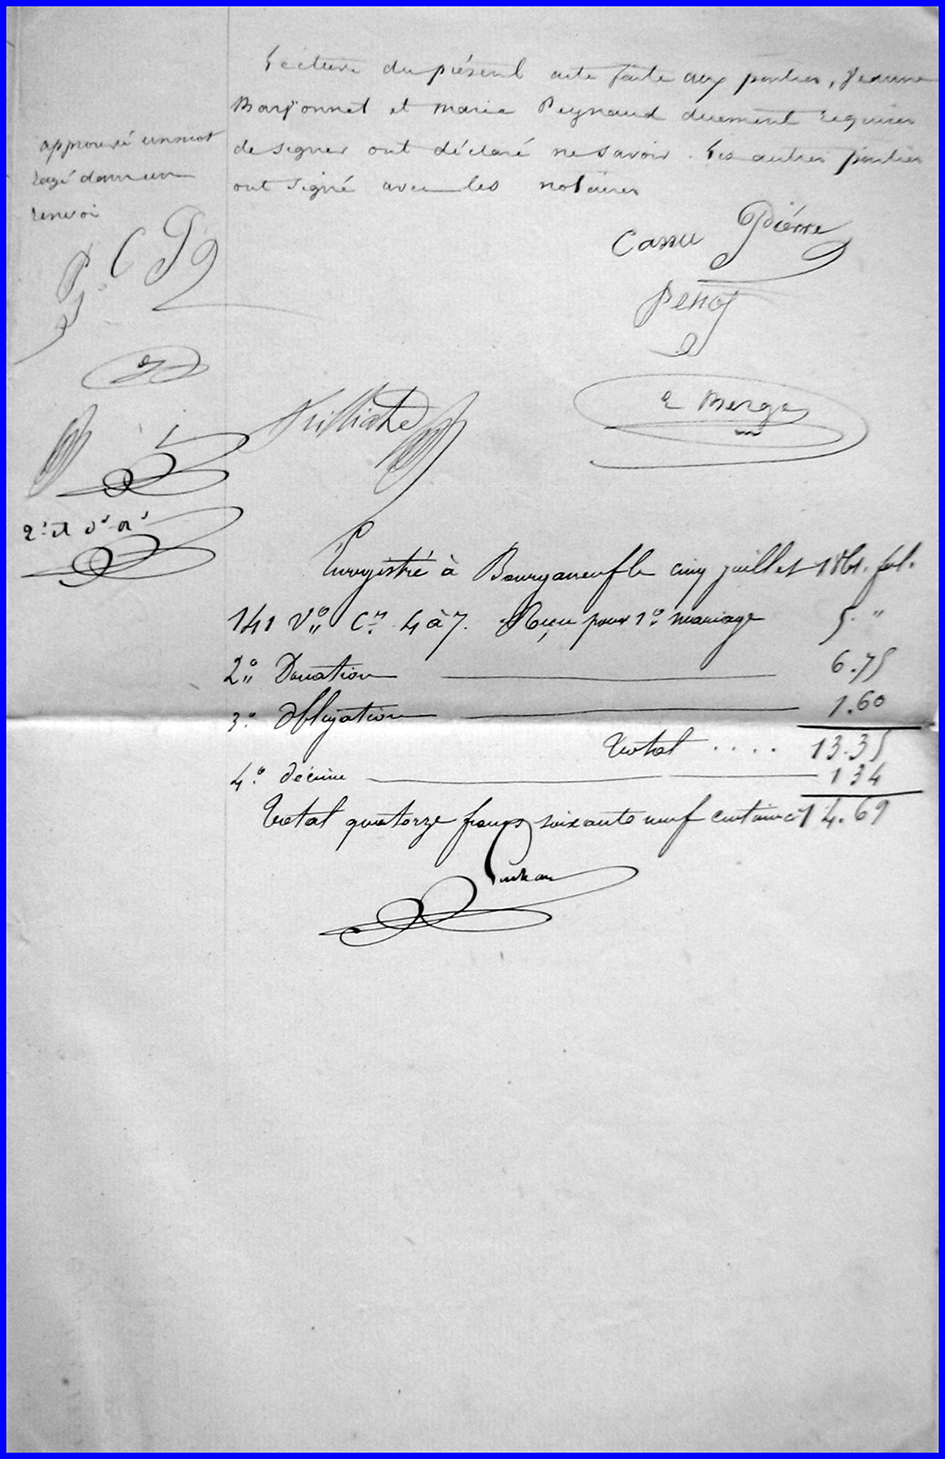 Lecture du présent acte faite aux parties, Jeanne
Barjonnet et marie Peynaud duement requises
de signer ont déclaré ne savoir. Les autres parties
ont signé avec les notaires
approuvé un mot
rayé dans un
renvoi
P C P
Cassu Pierre
Penot
Merge
Enregistré à Bourganeuf le cinq juillet 1861. fol.
141 Vo Cs. 4 à 7. Reçu pour 1o mariage 5. "
2o Donation 6.75
3o Obligation 1.60
Total .... 13.35
4o décime 134
Total quatorze francs soixante neuf centimes 14.69